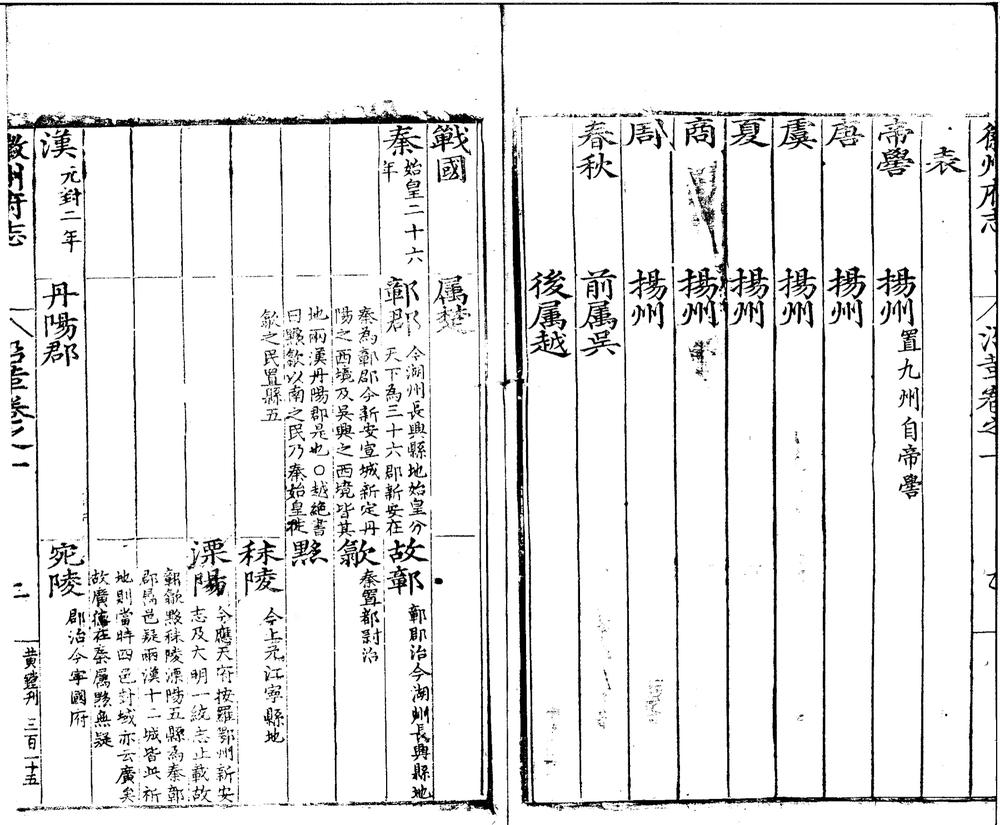 徽州府志
沿革卷之一
表
帝嚳 揚州 置九州自帝嚳
唐 揚州
虞 揚州
夏 揚州
商 揚州
周 揚州
春秋 前属吳
後属越
戰國 属楚
秦 始皇二十六
年
鄣郡 今湖州長興縣地始皇分
天下為三十六郡新安在
秦為鄣郡今新安宣城新定丹
陽之西境及吳興之西境皆其
地兩漢丹陽郡是也○越絶書
曰黟歙以南之民乃秦始皇徙
歙之民置縣五
故鄣 鄣郡治今湖州長興縣地
歙 秦置都尉治
黟
秣陵 今上元江寧縣地
溧陽 今應天府按羅鄂州新安
志及大明一統志止載故
鄣歙黟秣陵溧陽五縣為秦鄣
郡属邑疑兩漢十二城皆此析
地則當時四邑封域亦云廣矣
故廣德在秦属黟無疑
漢 元封二年
丹陽郡
宛陵 郡治今寧國府
徽州府志
沿革卷之一
三
黄鋀刋 三百二十五